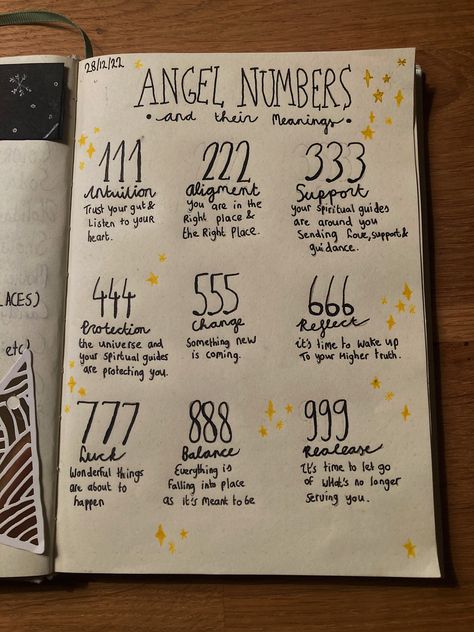 28/12/22
ANGEL NUMBERS
• and their Meanings •
111
Intuition
Trust your gut &
Listen to youR
heart.
222
Aligment
You are in the
Right place &
the Right Place.
333
Support
your Spiritual guides
are around you
Sending Love, support &
guidance.
444
Protection
the universe and
your Spirtual guides
are protecting you.
555
Change
Something new
is coming.
666
Reflect
it's time to wake up
To your Higher truth.
777
Luck
Wonderful things
are about to
happen
888
Balance
Everything is
Falling into place
as it's meant to be
999
Realease
It's time to let go
of what's no longer
serving you.
LACES)
etc)